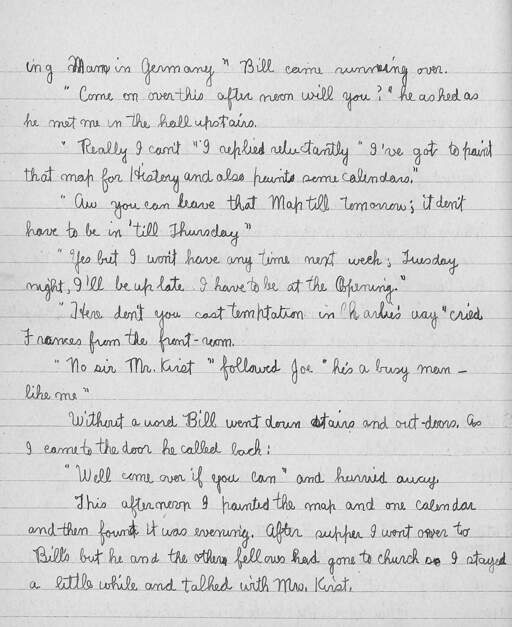 ing Man in Germany" Bill came running over.
"Come on over this after noon will you?" he asked as
he met me in the hall upstairs.
"Really I can't" I replied reluctantly "I've got to paint
that map for History and also paint some calendars."
"Aw you can leave that Map till tomorrow; it don't
have to be in 'till Thursday"
"Yes but I won't have any time next week; Tuesday
night, I'll be up late I have to be at the Opening."
"Here don't you cast temptation in Charlie's way" cried
Frances from the front-room.
"No sir Mr. Kirst" followed Joe "he's a busy man –
like me"
Without a word Bill went down stairs and out-doors. As
I came to the door he called back:
"Well come over if you can" and hurried away.
This afternoon I painted the map and one calendar
and then found it was evening. After supper I went over to
Bill's but he and the other fellows had gone to church so I stayed
a little while and talked with Mrs. Kirst.